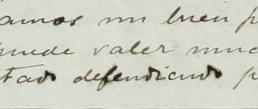 amos un buen p
uede valer muc
tado defendiendo p